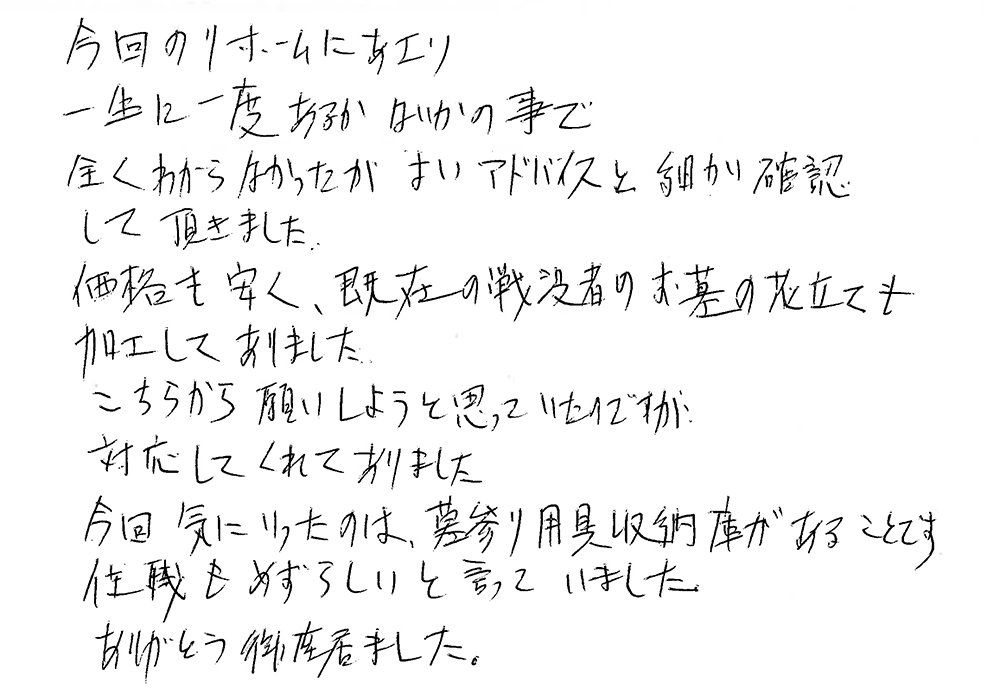 今回のリホームにあたり
一生に一度あるかないかの事で
全くわからなかったが よいアドバイスと 細かい確認
して頂きました。
価格も安く、既存の戦没者のお墓の花立ても
加工してありました
こちらから願いしようと思っていたのですが、
対応してくれてありました
今回 気にいったのは、墓参り用具収納庫があることです
住職もめずらしいと言っていました。
ありがとう御座居ました。